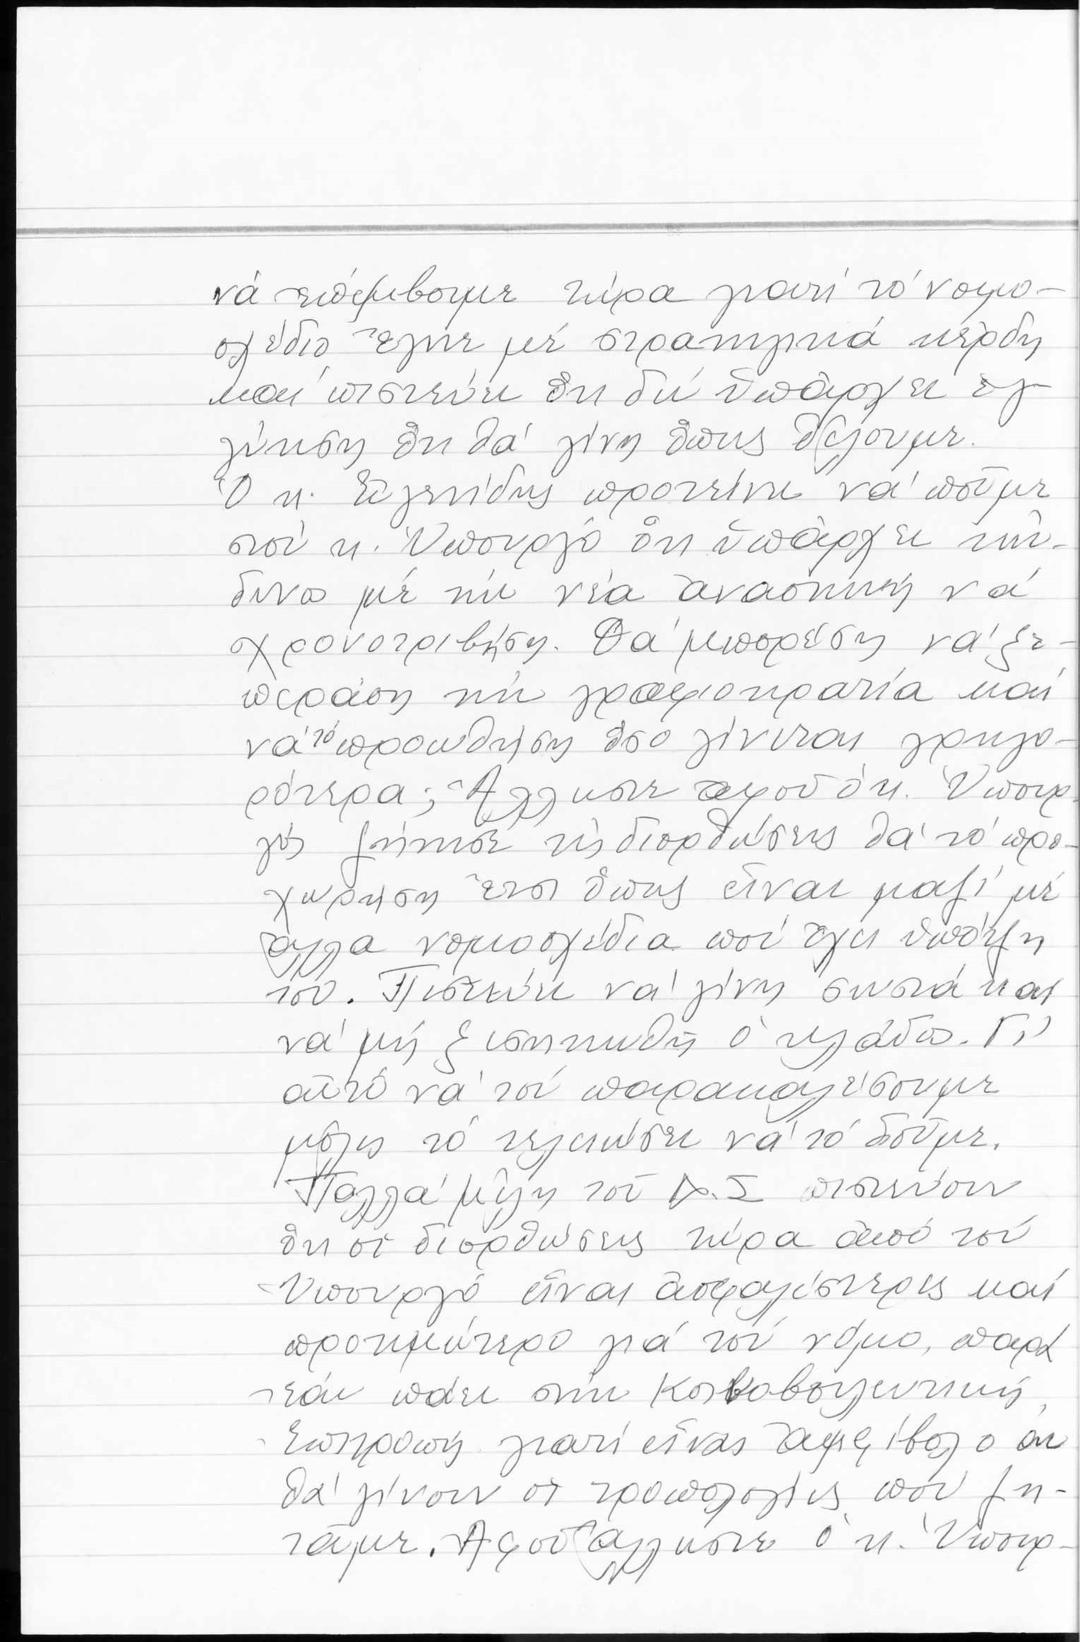 νά ἐπέμβουμε τώρα γιατί τό νομο-
σχέδιο ἔγινε μέ στρατηγικά κέρδη
καί πιστεύει ὅτι δέν ὑπάρχει ἐγ-
γύηση ὅτι θά γίνη ὅπως θέλουμε.
Ὁ κ. Εὐγενίδης προτείνει νά ποῦμε
στόν κ. Ὑπουργό ὅτι ὑπάρχει κίν-
δυνος μέ τήν νέα ἀνασκοπή νά
χρονοτριβήση. Θά μπορέση νά ξε-
περάση τήν γραφειοκρατία καί
νά τό προωθήση ὅσο γίνεται γρηγο-
ρότερα; Ἄλλωστε ἀφοῦ ὁ κ. Ὑπουρ
γός ζήτησε τίς διορθώσεις θά τό προ-
χωρήση ἔτσι ὅπως εἶναι μαζί μέ
ἄλλα νομοσχέδια πού ἔχει ὑπόψη
του. Πιστεύει νά γίνη σωστά και
νά μή ξεσηκωθῆ ὁ κλάδος. Γι'
αὐτό νά τόν παρακαλέσουμε
μόλις τό τελειώσει νά τό δοῦμε.
Πολλά μέλη τοῦ Δ.Σ πιστεύουν
ὅτι οἱ διορθώσεις τώρα ἀπό τόν
Ὑπουργό εἶναι ἀσφαλέστερες καί
προτιμώτερο γιά τόν νόμο, παρά
ἐάν πάει στήν Κοινοβουλευτική
Ἐπιτροπή γιατί εἶναι ἀμφίβολο ἄν
θά γίνουν οἱ τροπολογίες πού ζη-
τᾶμε. Ἀφοῦ ἄλλωστε ὁ κ. Ὑπουρ-